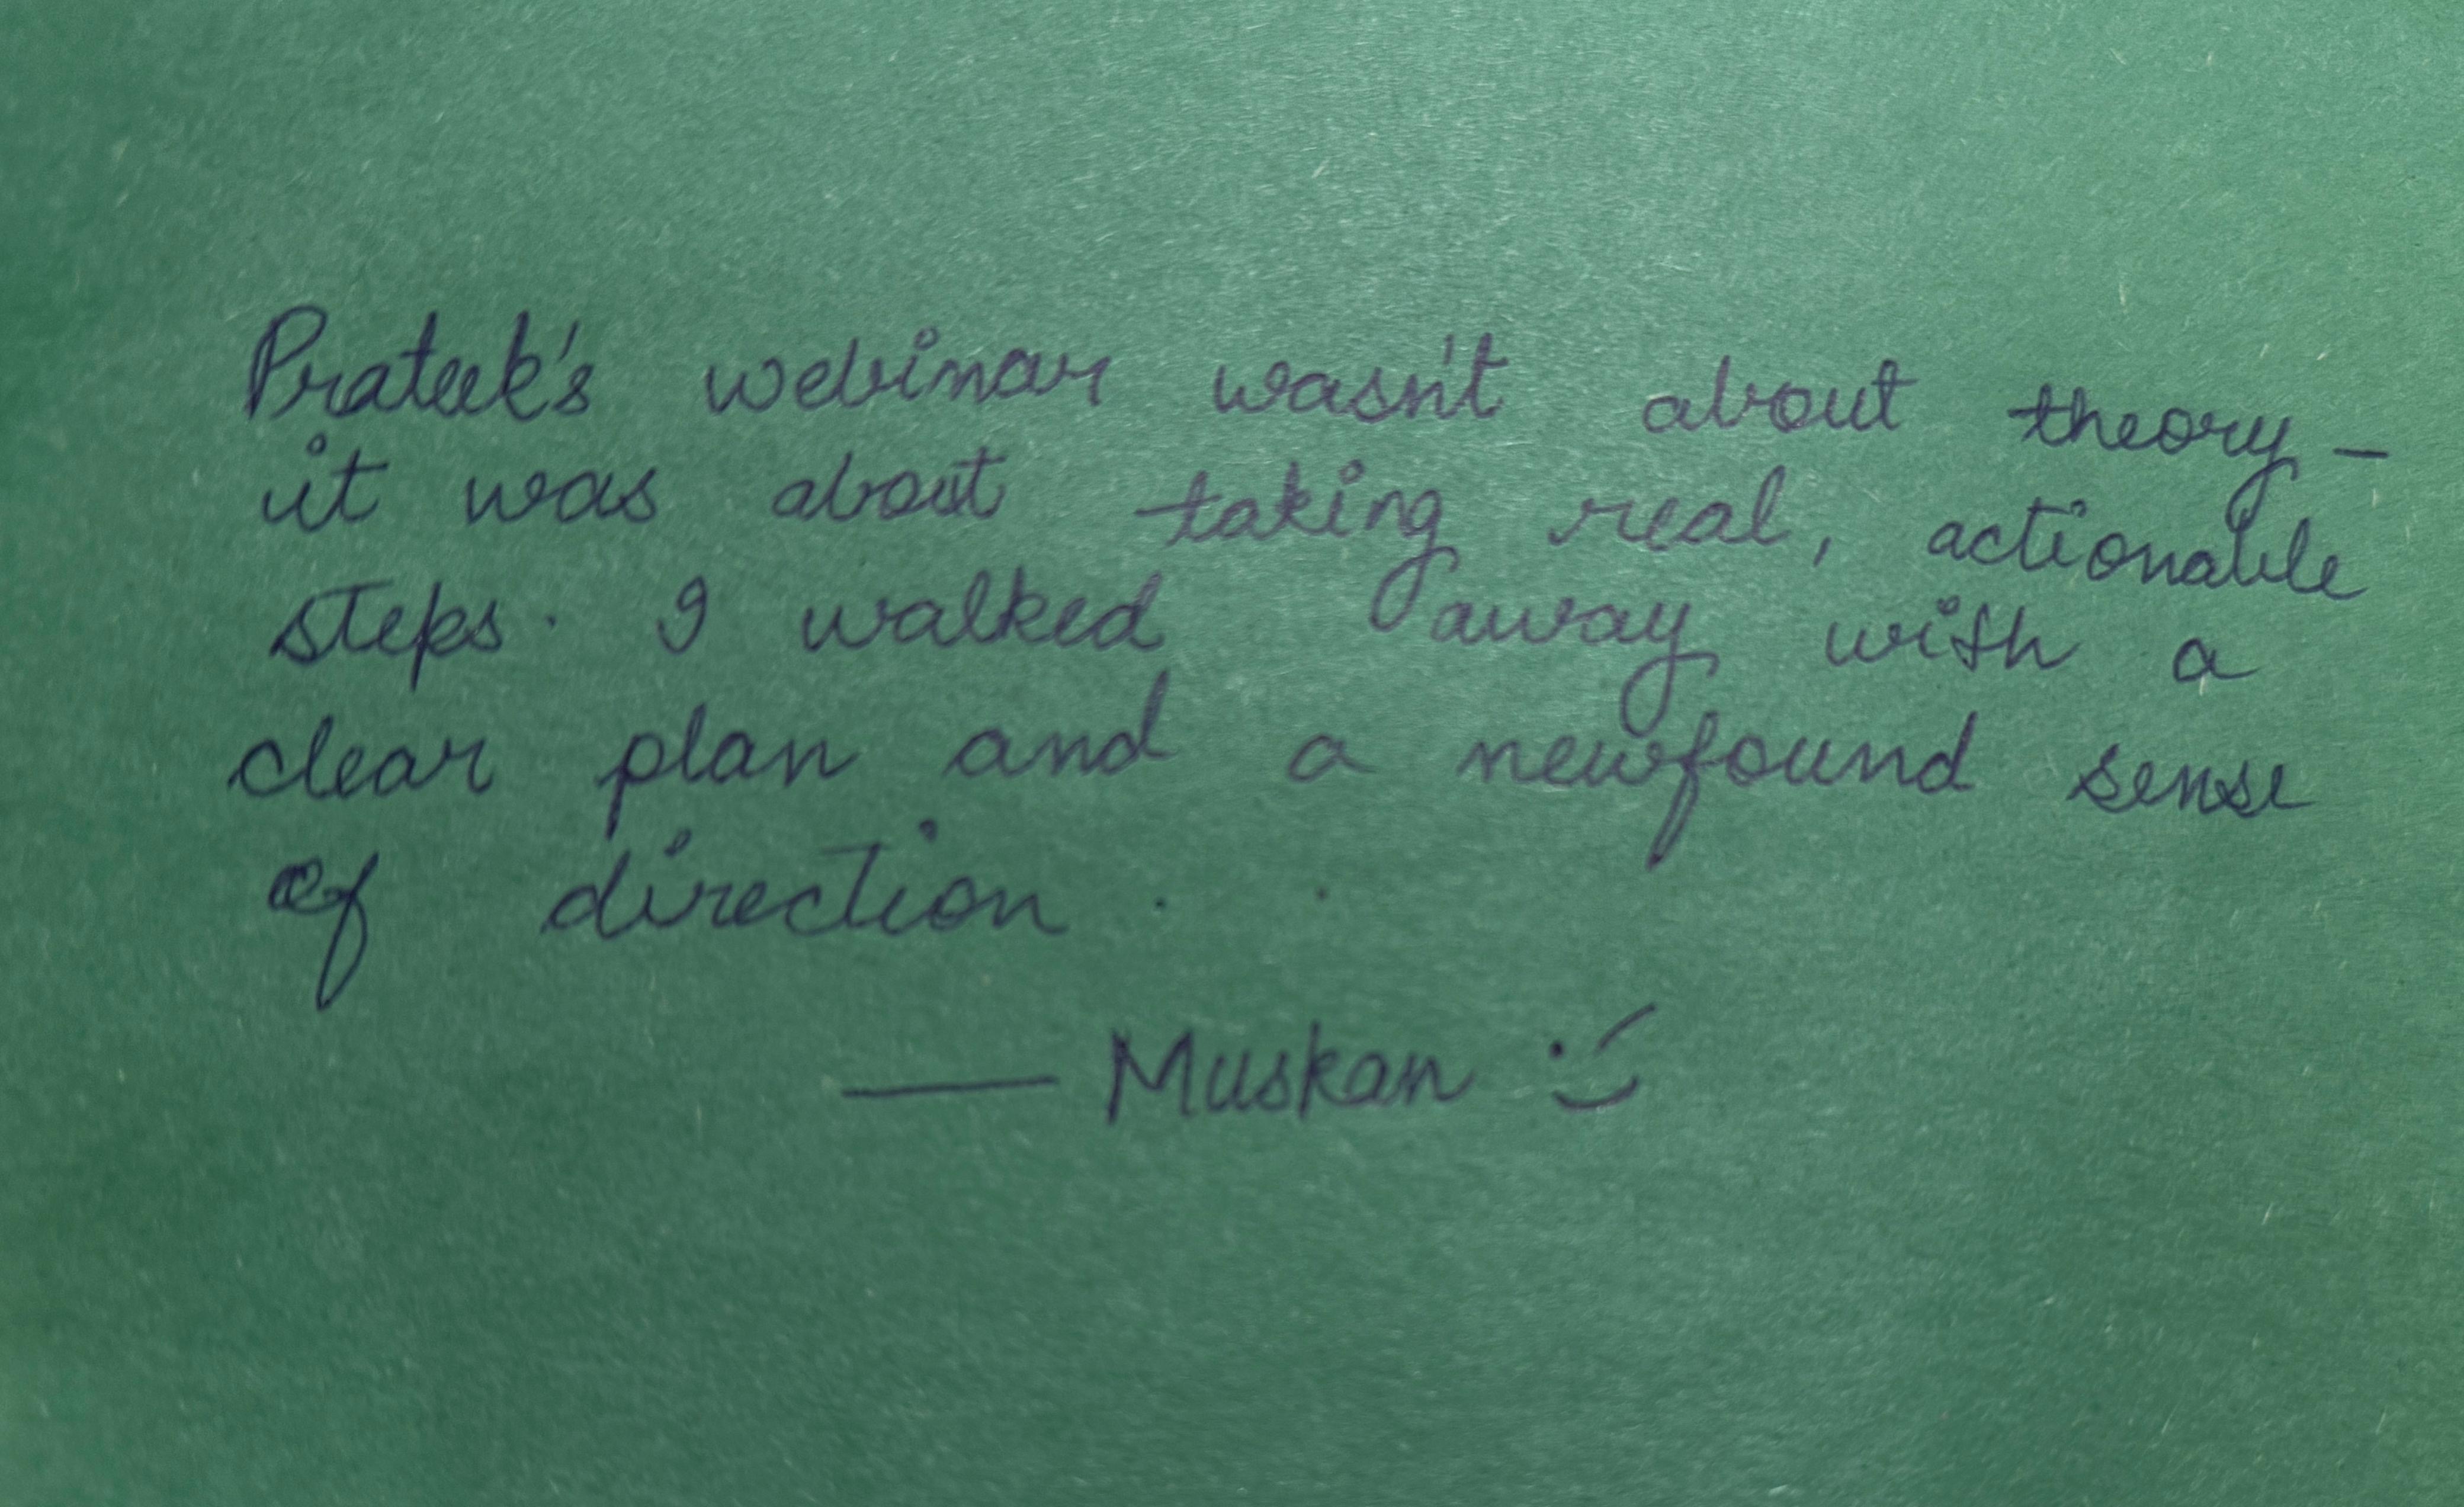 Prateek's webinar wasn't about theory –
it was about taking real, actionable
steps. I walked away with a
clear plan and a newfound sense
of direction.
— Muskan :)